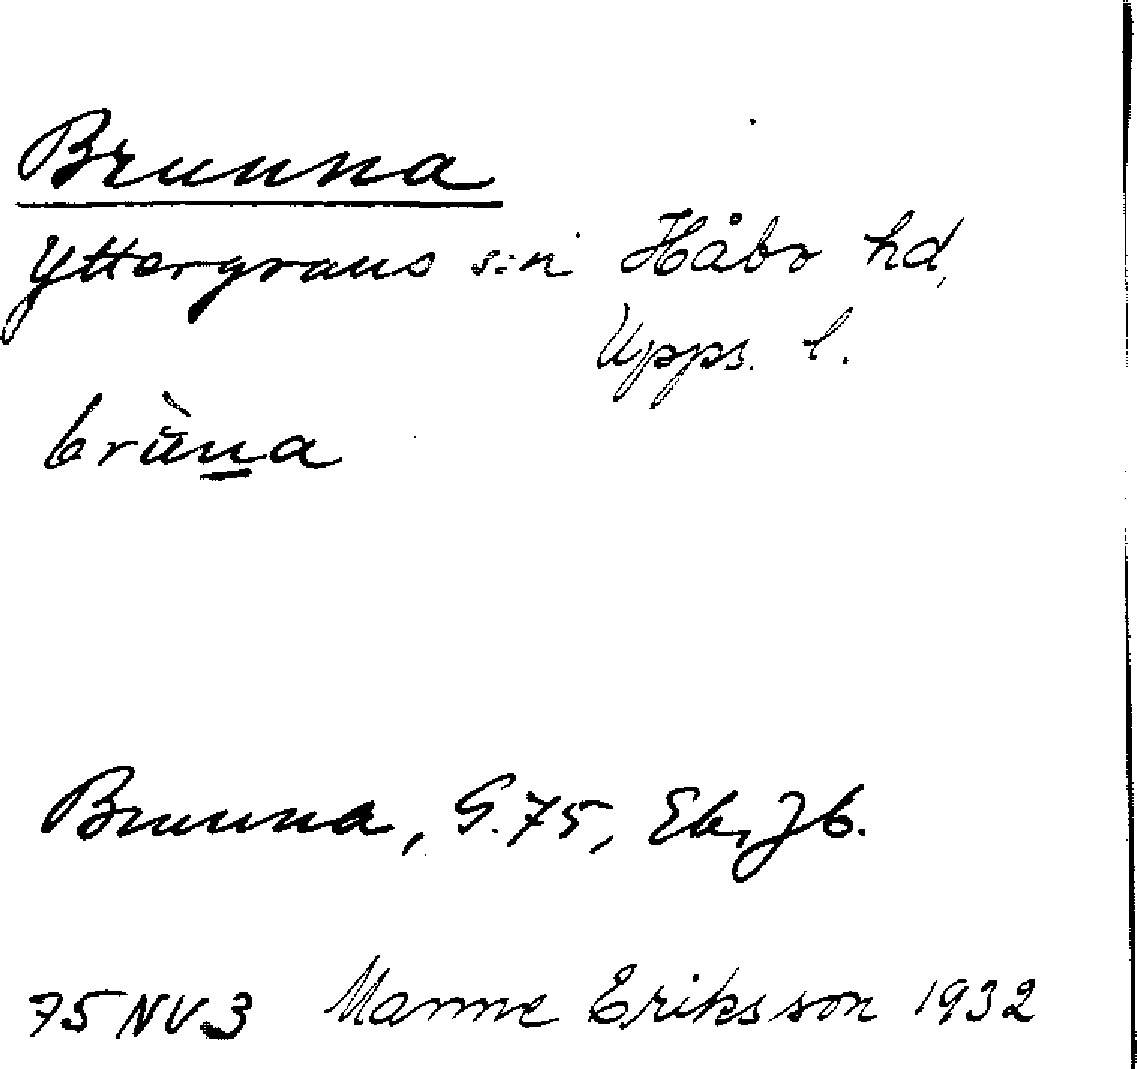 Brunna
Yttergrans s:n Håbo hd,
Upps. l.
brùna
Brunna, G.75, Eb, Jb.
75 NV.3 Manne Eriksson 1932